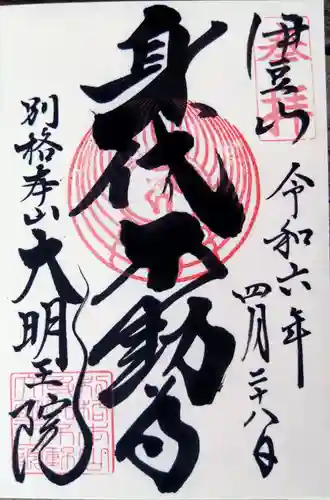 伊豆山
奉拝
令和六年
四月二十八日
身代不動尊
別格本山
大明王院